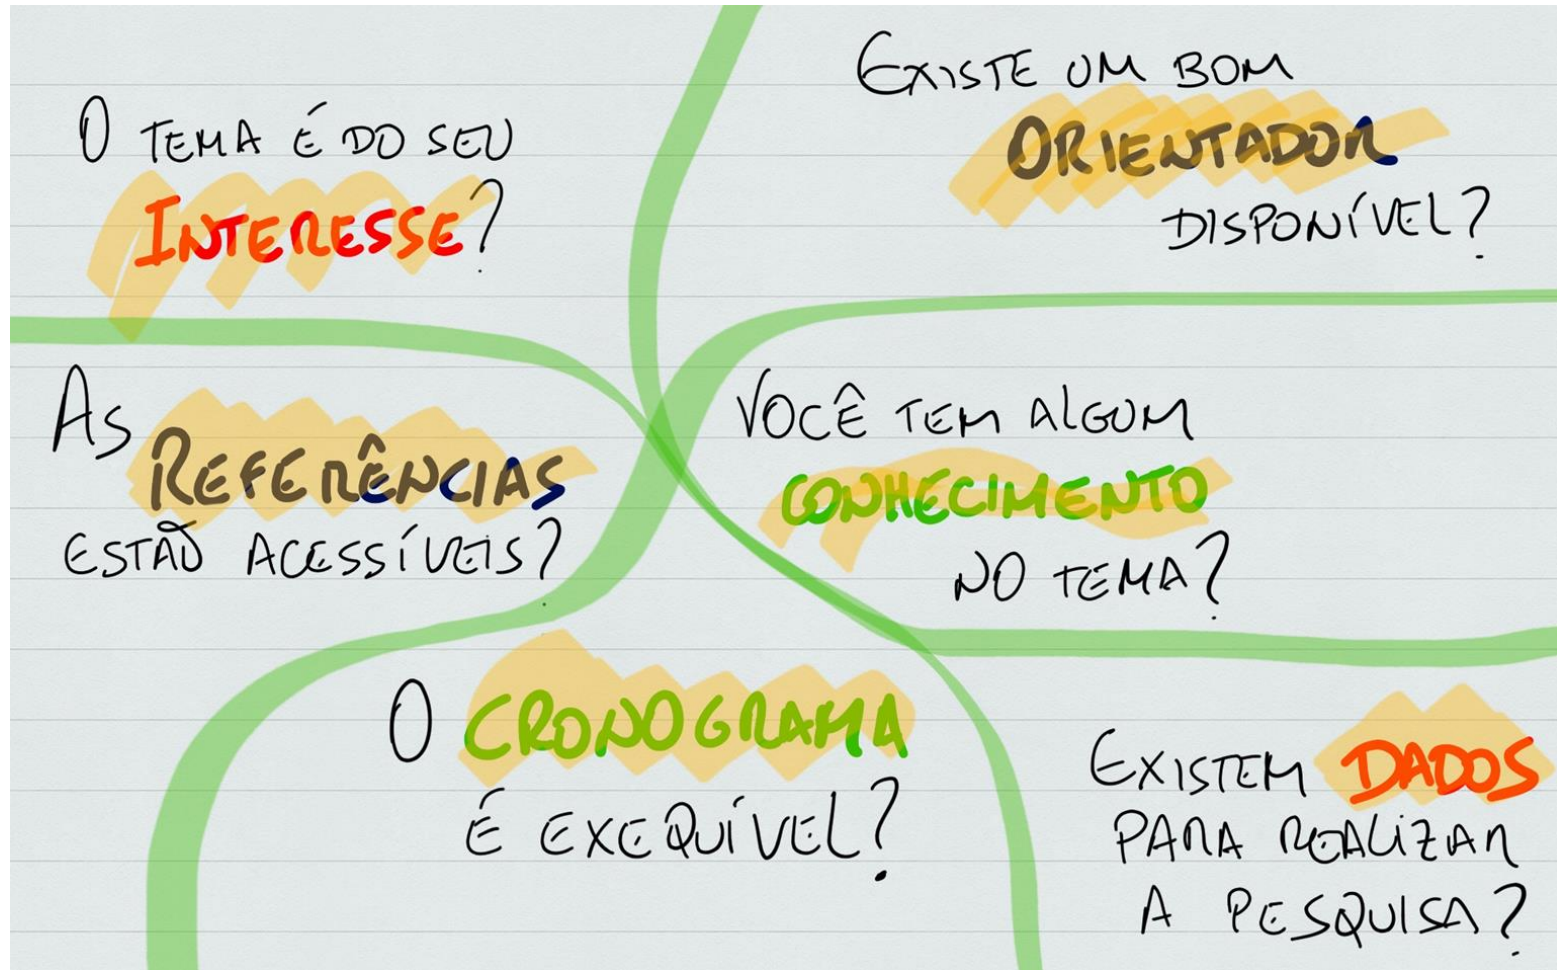 O TEMA É DO SEU
INTERESSE?
EXISTE UM BOM
ORIENTADOR
DISPONÍVEL?
AS
REFERÊNCIAS
ESTÃO ACESSÍVEIS?
VOCÊ TEM ALGUM
CONHECIMENTO
NO TEMA?
O CRONOGRAMA
É EXEQUÍVEL?
EXISTEM DADOS
PARA REALIZAR
A PESQUISA?